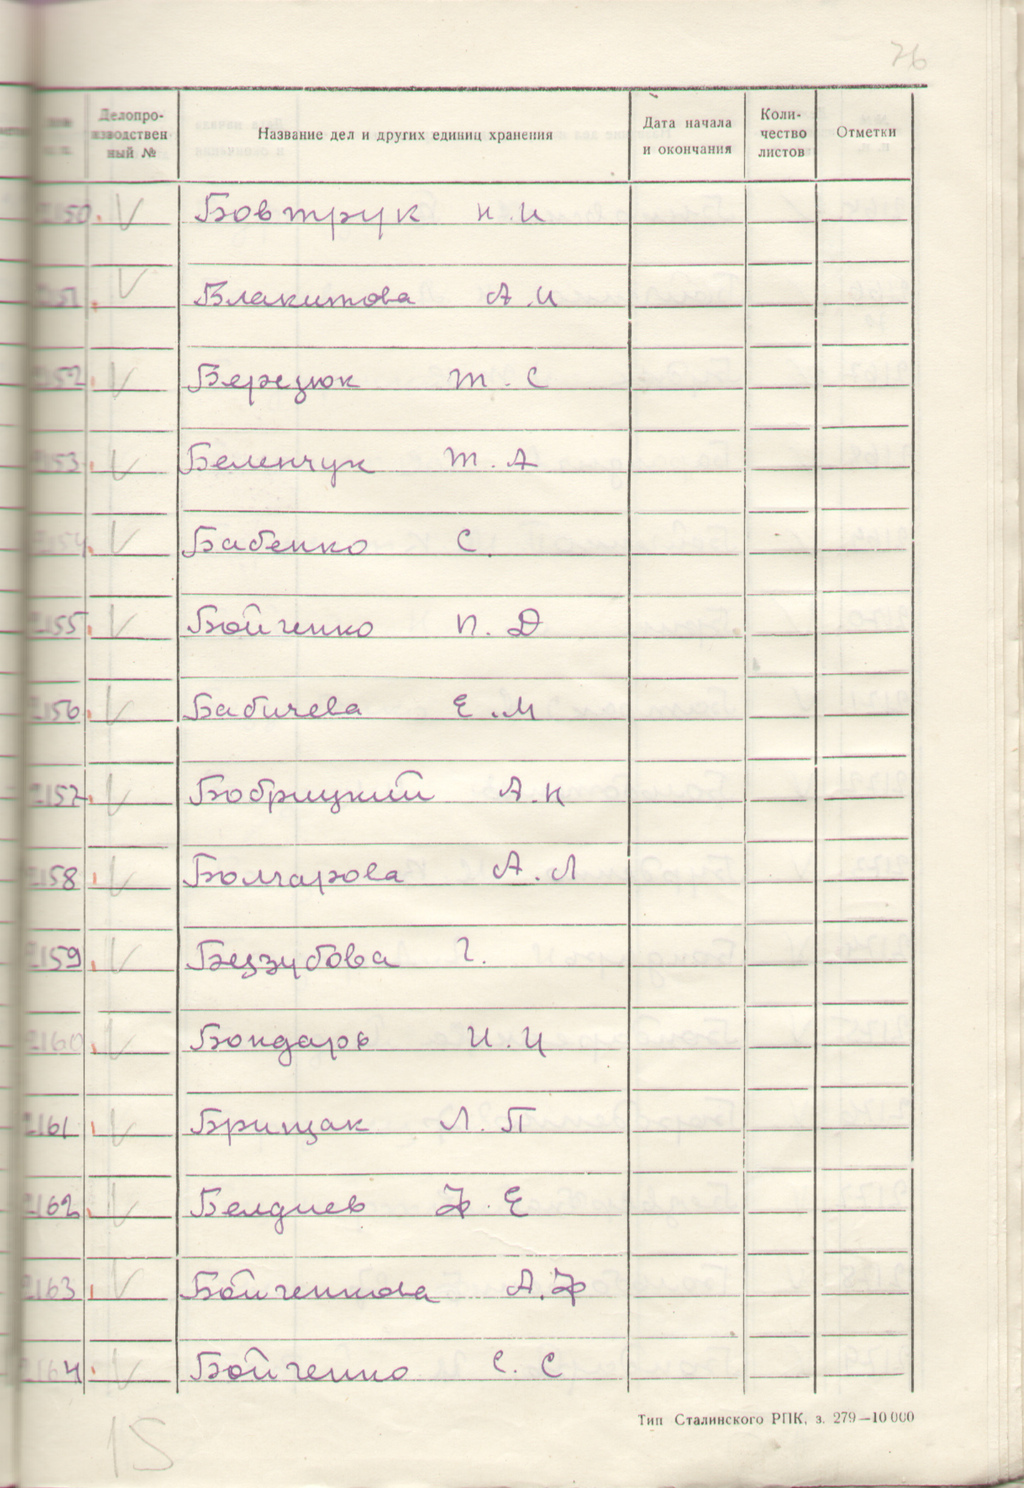 76
Делопро-
изводствен
ный №
Название дел и других единиц хранения
Дата начала
и окончания
Коли-
чество
листов
Отметки
2150. V Бовтрук Н. И
2151. V Блакитова А. И
2152. V Березюк Т. С
2153. V Беленчук Т. А
2154. V Бабенко С.
2155. V Бойченко П. Д
2156. V Бабичева Е. М
2157. V Бобрицкий А. Н
2158. V Болчарова А. Л
2159. V Беззубова Г.
2160. V Бондарев И. И
2161. V Брищак Л. П
2162. V Белдиев Ф. Е
2163. V Бойченкова А. Ф
2164. V Бойченко С. С
15
Тип Сталинского РПК, з. 279—10 000